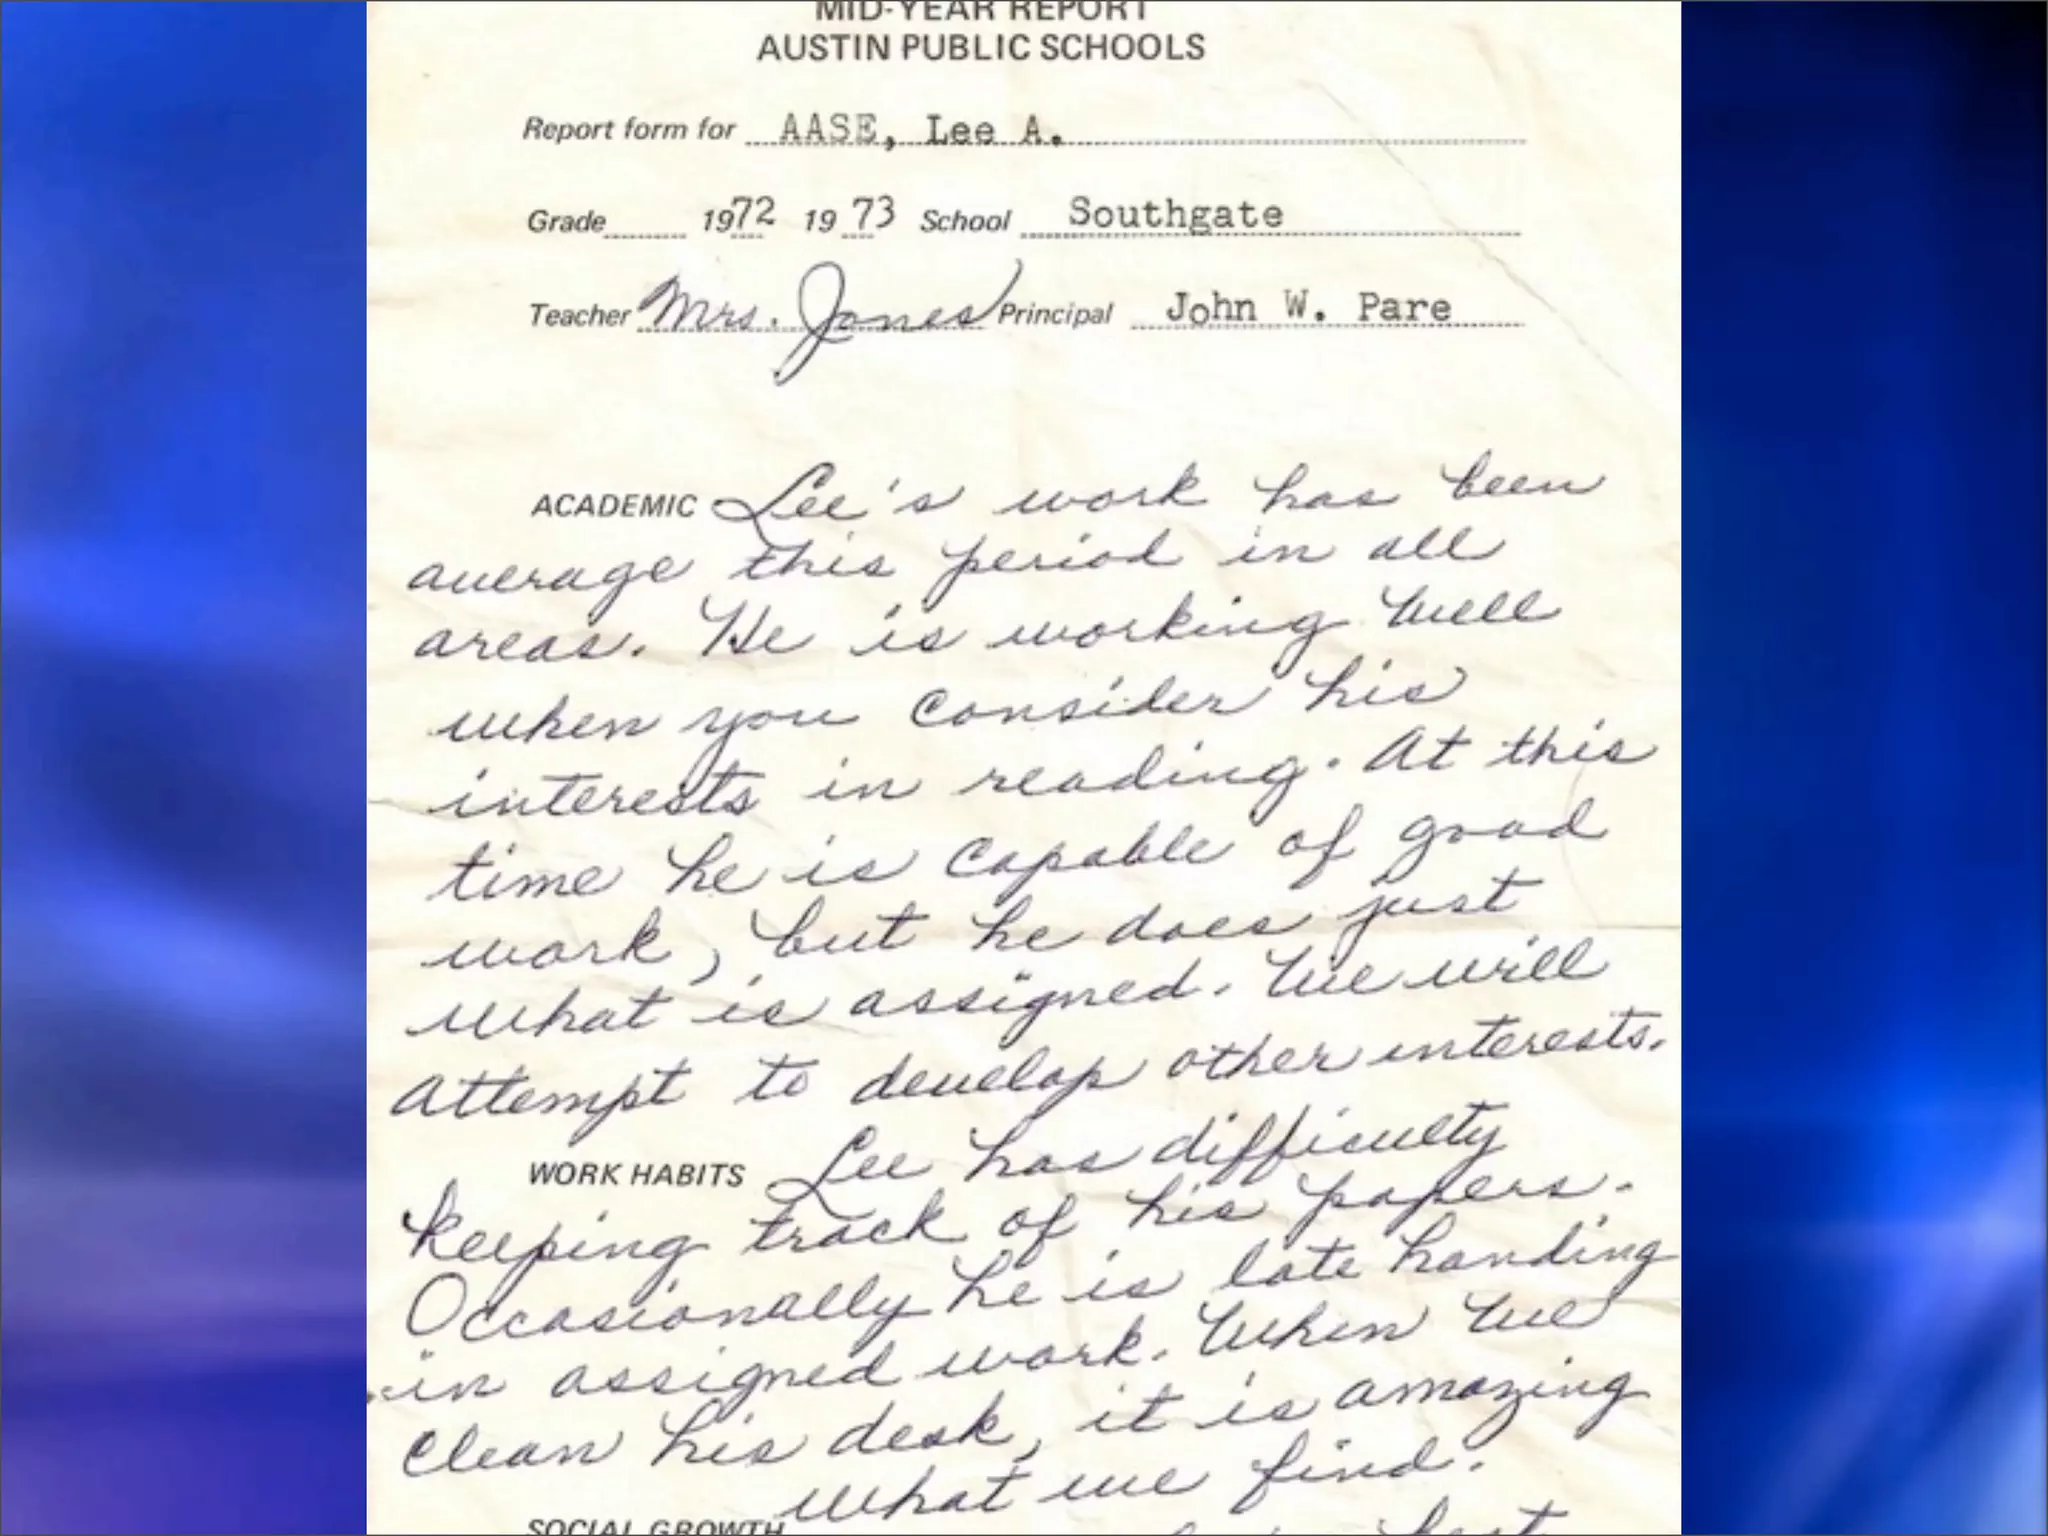 MID-YEAR REPORT
AUSTIN PUBLIC SCHOOLS
Report form for AASE, Lee A.
Grade 1972 1973 School Southgate
Teacher Mrs. Jones Principal John W. Pare
ACADEMIC Lee's work has been
average this period in all
areas. He is working well
when you consider his
interests in reading. At this
time he is capable of good
work, but he does just
what is assigned. We will
attempt to develop other interests.
WORK HABITS Lee has difficulty
keeping track of his papers.
Occasionally he is late handing
in assigned work. When we
clean his desk, it is amazing
what we find.
SOCIAL GROWTH